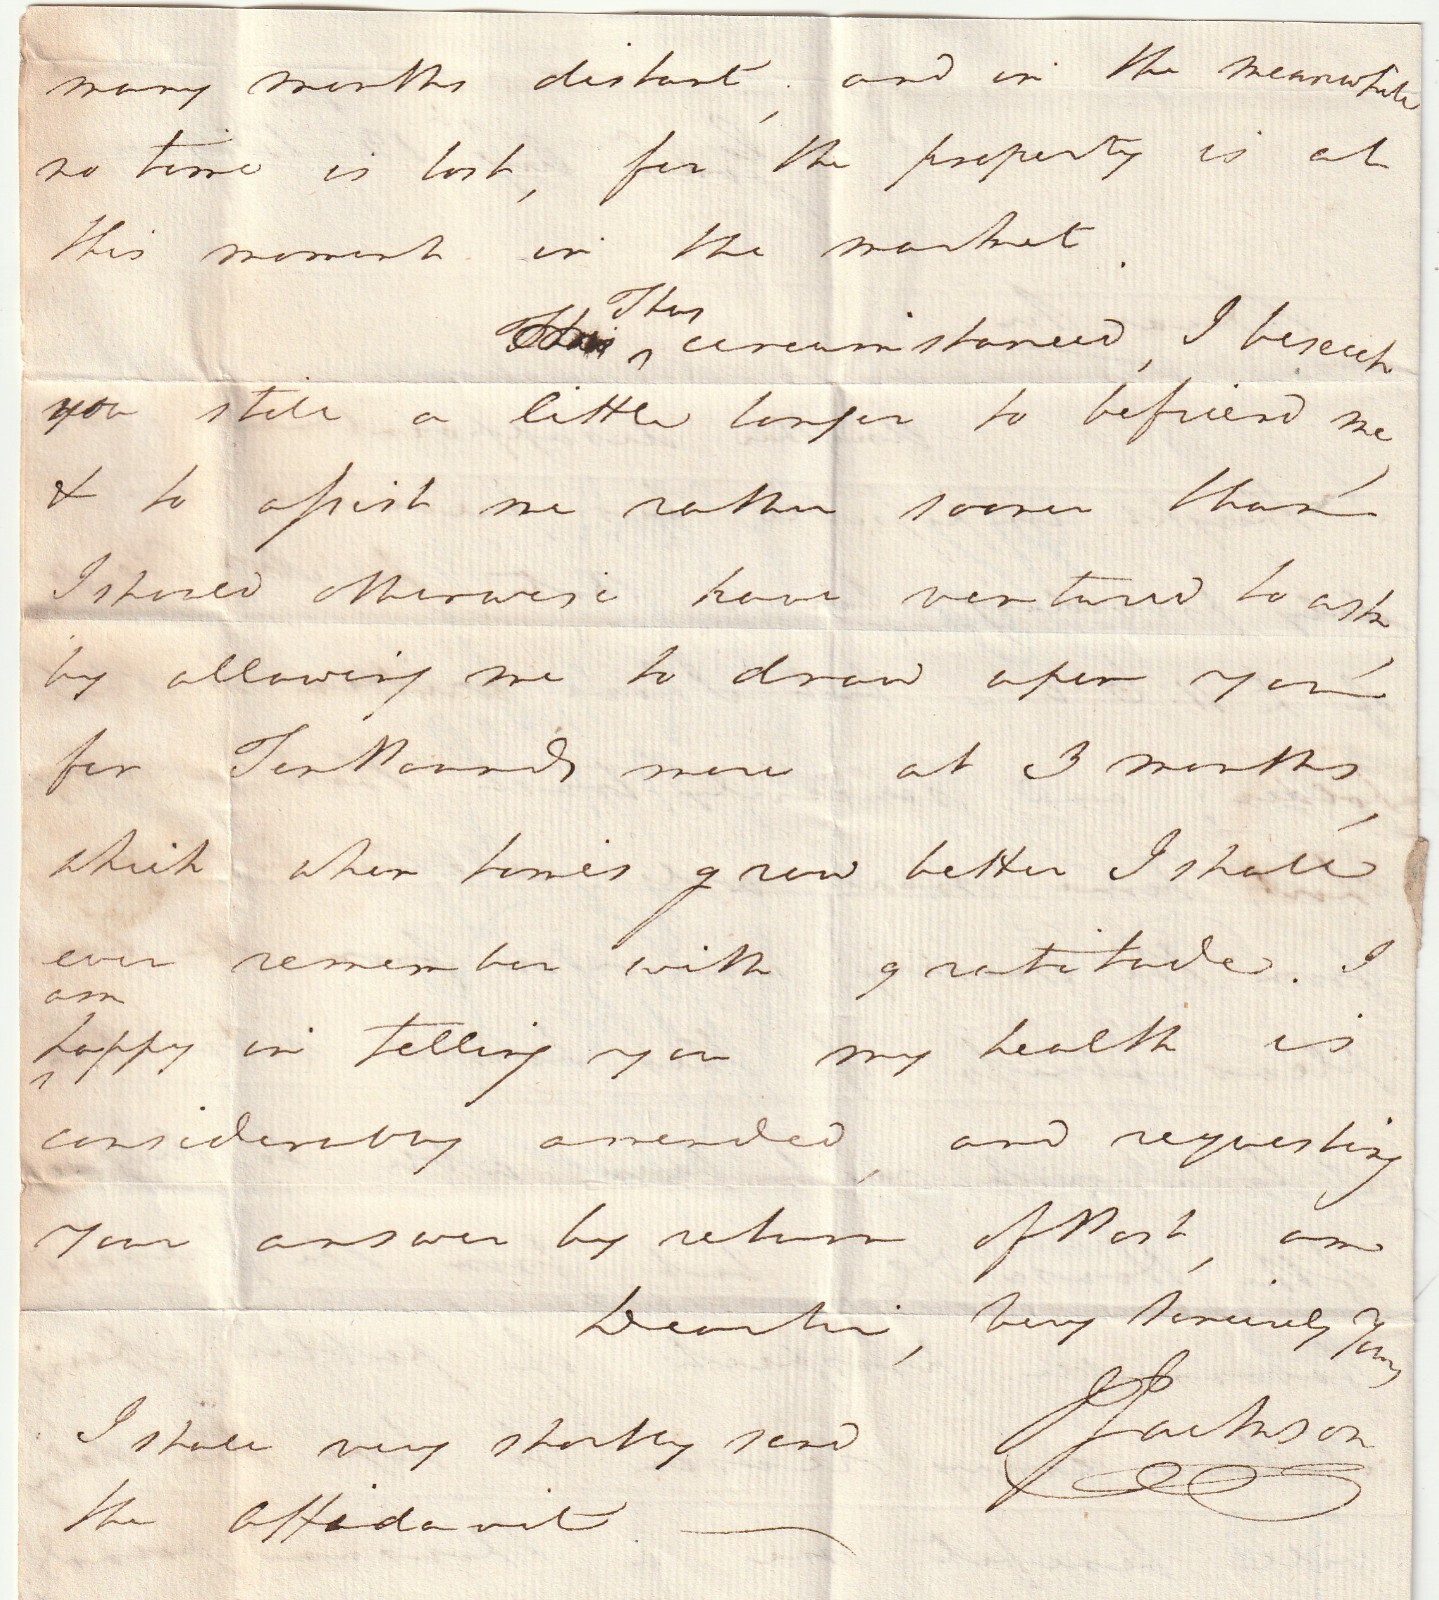 many months distant, and in the meanwhile
no time is lost, for the property is at
this moment in the market.
Thus circumstanced, I beseech
you still a little longer to befriend me,
& to assist me rather sooner than
I should otherwise have ventured to ask,
by allowing me to draw upon you
for Ten Pounds more at 3 months,
which when times grow better I shall
ever remember with gratitude. I
am
happy in telling you my health is
considerably amended, and requesting
your answer by return of Post, am
Dear Sir, very sincerely Yours
J Jackson
I shall very shortly send
the affidavit.